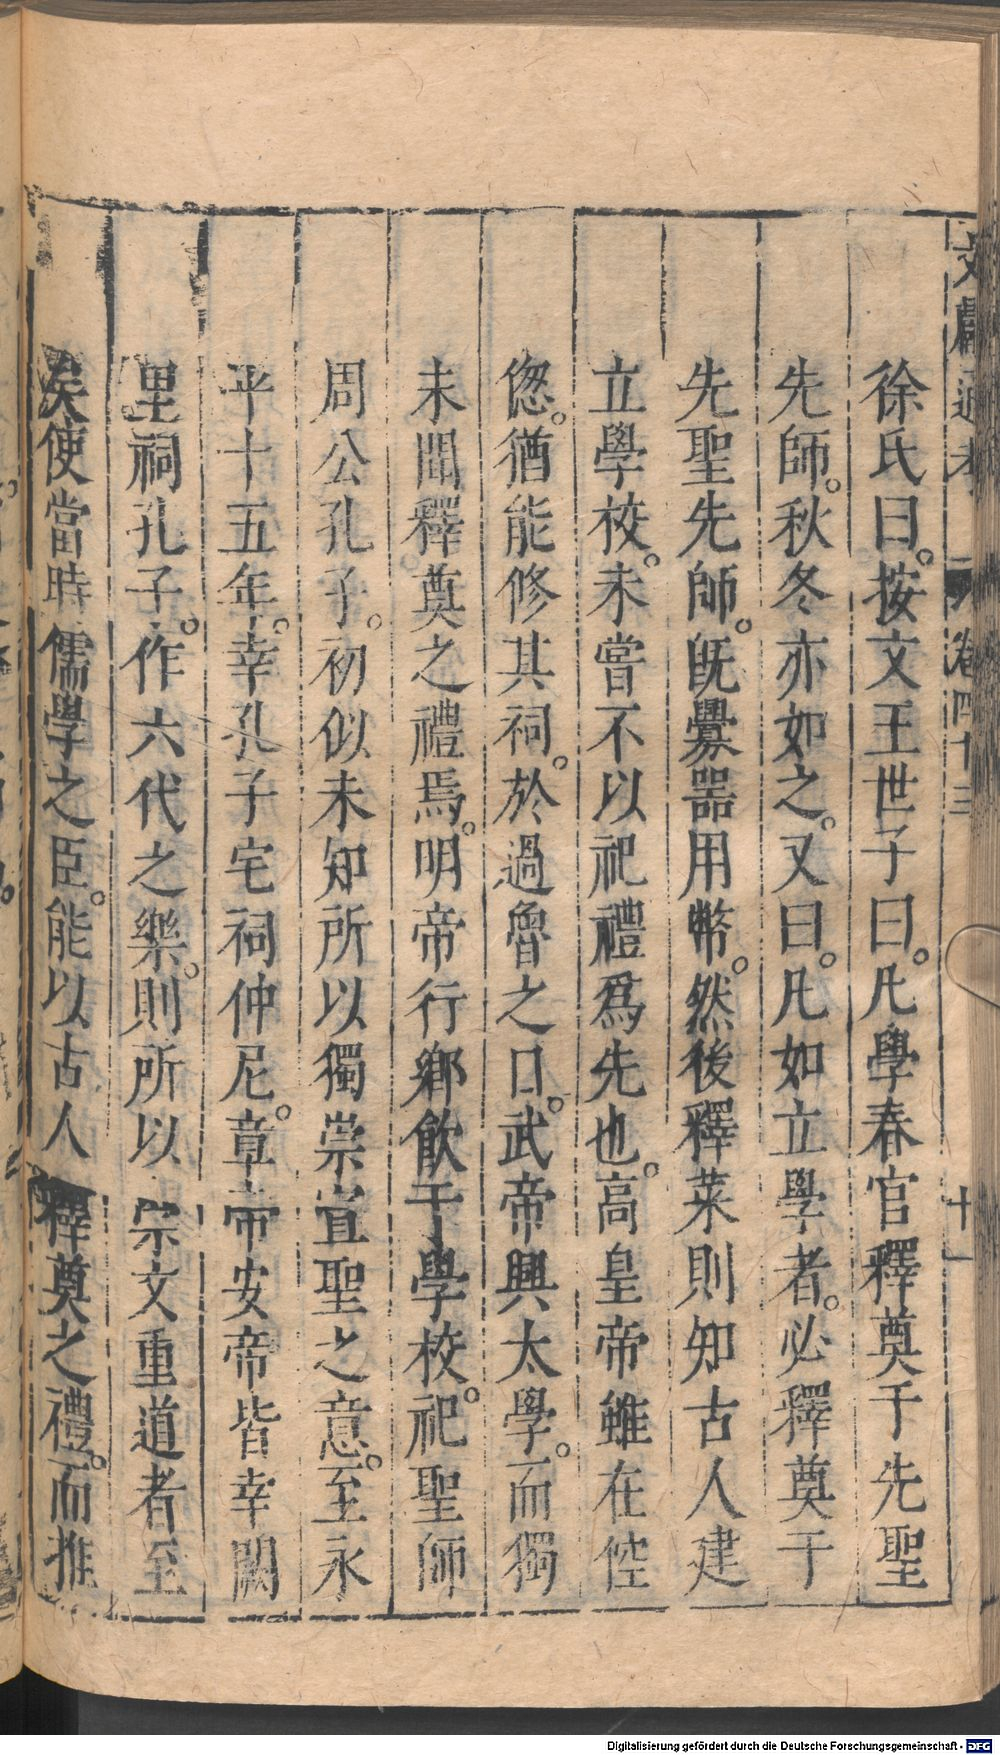 文獻通考 卷四十三 十一
徐氏曰。按文王世子曰。凡學春官釋奠于先聖
先師。秋冬亦如之。又曰。凡如立學者。必釋奠于
先聖先師。既釁器用幣。然後釋菜則知古人建
立學校。未嘗不以祀禮爲先也。高皇帝雖在倥
偬。猶能修其祠。於過魯之日。武帝興太學。而獨
未聞釋奠之禮焉。明帝行鄉飲于學校。祀聖師
周公孔子。初似未知所以獨崇宣聖之意。至永
平十五年。幸孔子宅祠仲尼。章帝安帝皆幸闕
里祠孔子。作六代之樂。則所以崇文重道者至
矣使當時儒學之臣。能以古人釋奠之禮。而推
Digitalisierung gefördert durch die Deutsche Forschungsgemeinschaft - DFG